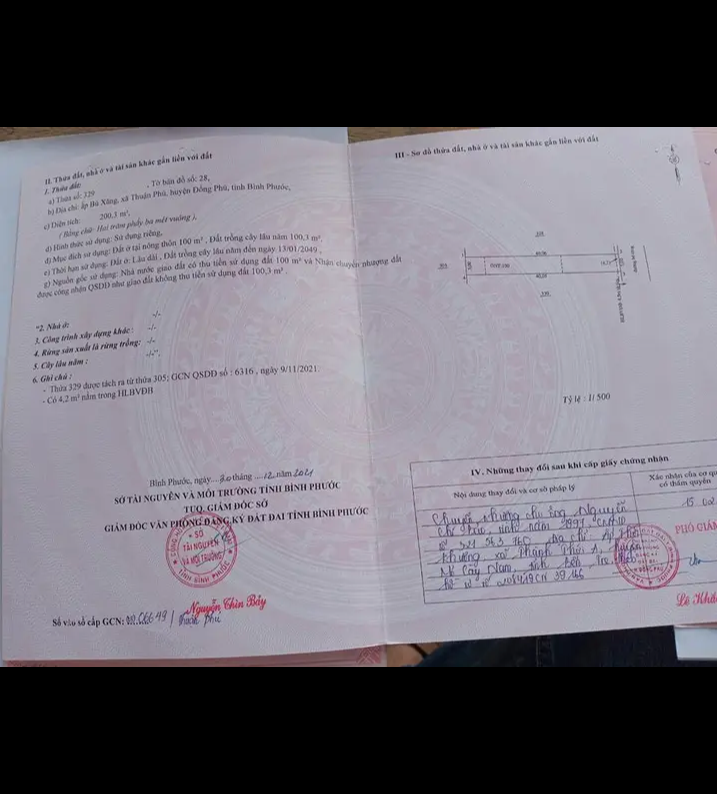 II. Thửa đất, nhà ở và tài sản khác gắn liền với đất
1. Thửa đất:
a) Thửa số: 329 , Tờ bản đồ số: 28,
b) Địa chỉ: ấp Bù Xăng, xã Thuận Phú, huyện Đồng Phú, tỉnh Bình Phước,
c) Diện tích: 200,3 m²,
( Bằng chữ: Hai trăm phẩy ba mét vuông ),
d) Hình thức sử dụng: Sử dụng riêng,
đ) Mục đích sử dụng: Đất ở tại nông thôn 100 m² , Đất trồng cây lâu năm 100,3 m²,
e) Thời hạn sử dụng: Đất ở: Lâu dài , Đất trồng cây lâu năm đến ngày 13/01/2049 ,
g) Nguồn gốc sử dụng: Nhà nước giao đất có thu tiền sử dụng đất 100 m² và Nhận chuyển nhượng đất
được công nhận QSDĐ như giao đất không thu tiền sử dụng đất 100,3 m² .
"2. Nhà ở: -/-
3. Công trình xây dựng khác : -/-
4. Rừng sản xuất là rừng trồng: -/-
5. Cây lâu năm : -/-",
6. Ghi chú :
- Thửa 329 được tách ra từ thửa 305; GCN QSDĐ số : 6316 , ngày 9/11/2021.
- Có 4,2 m² nằm trong HLBVĐB
Bình Phước, ngày....20 tháng ....12..năm 2021
SỞ TÀI NGUYÊN VÀ MÔI TRƯỜNG TỈNH BÌNH PHƯỚC
TUQ. GIÁM ĐỐC SỞ
GIÁM ĐỐC VĂN PHÒNG ĐĂNG KÝ ĐẤT ĐAI TỈNH BÌNH PHƯỚC
SỞ
TÀI NGUYÊN
VÀ MÔI TRƯỜNG
TỈNH BÌNH PHƯỚC
Nguyễn Thìn Bảy
Số vào sổ cấp GCN: 06649 / Thuận Phú
III - Sơ đồ thửa đất, nhà ở và tài sản khác gắn liền với đất
Tỷ lệ : 1/ 500
IV. Những thay đổi sau khi cấp giấy chứng nhận
Nội dung thay đổi và cơ sở pháp lý
Xác nhận của cơ qu
có thẩm quyền
Chuyển nhượng cho ông Nguyễn
Chí sinh năm CMND
số 321 563 760 địa chỉ: Ấp
Khương, xã Thành Thới A, huyện
Mỏ Cày Nam, tỉnh Bến Tre
15
PHÓ GIÁM
Lê Khá